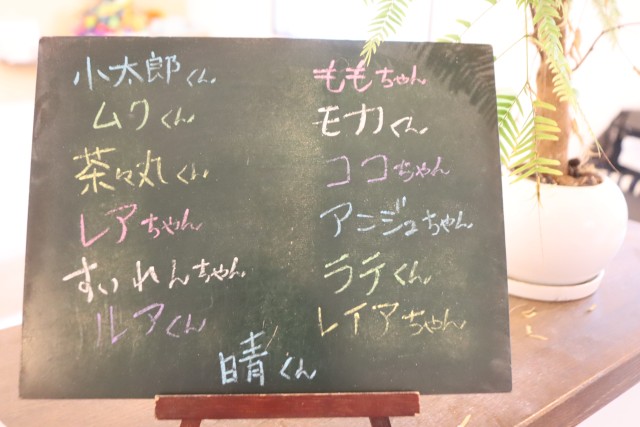 小太郎くん
ムクくん
茶々丸くん
レアちゃん
すいれんちゃん
ルアくん
ももちゃん
モカくん
ココちゃん
アンジュちゃん
ラテくん
レイアちゃん
晴くん